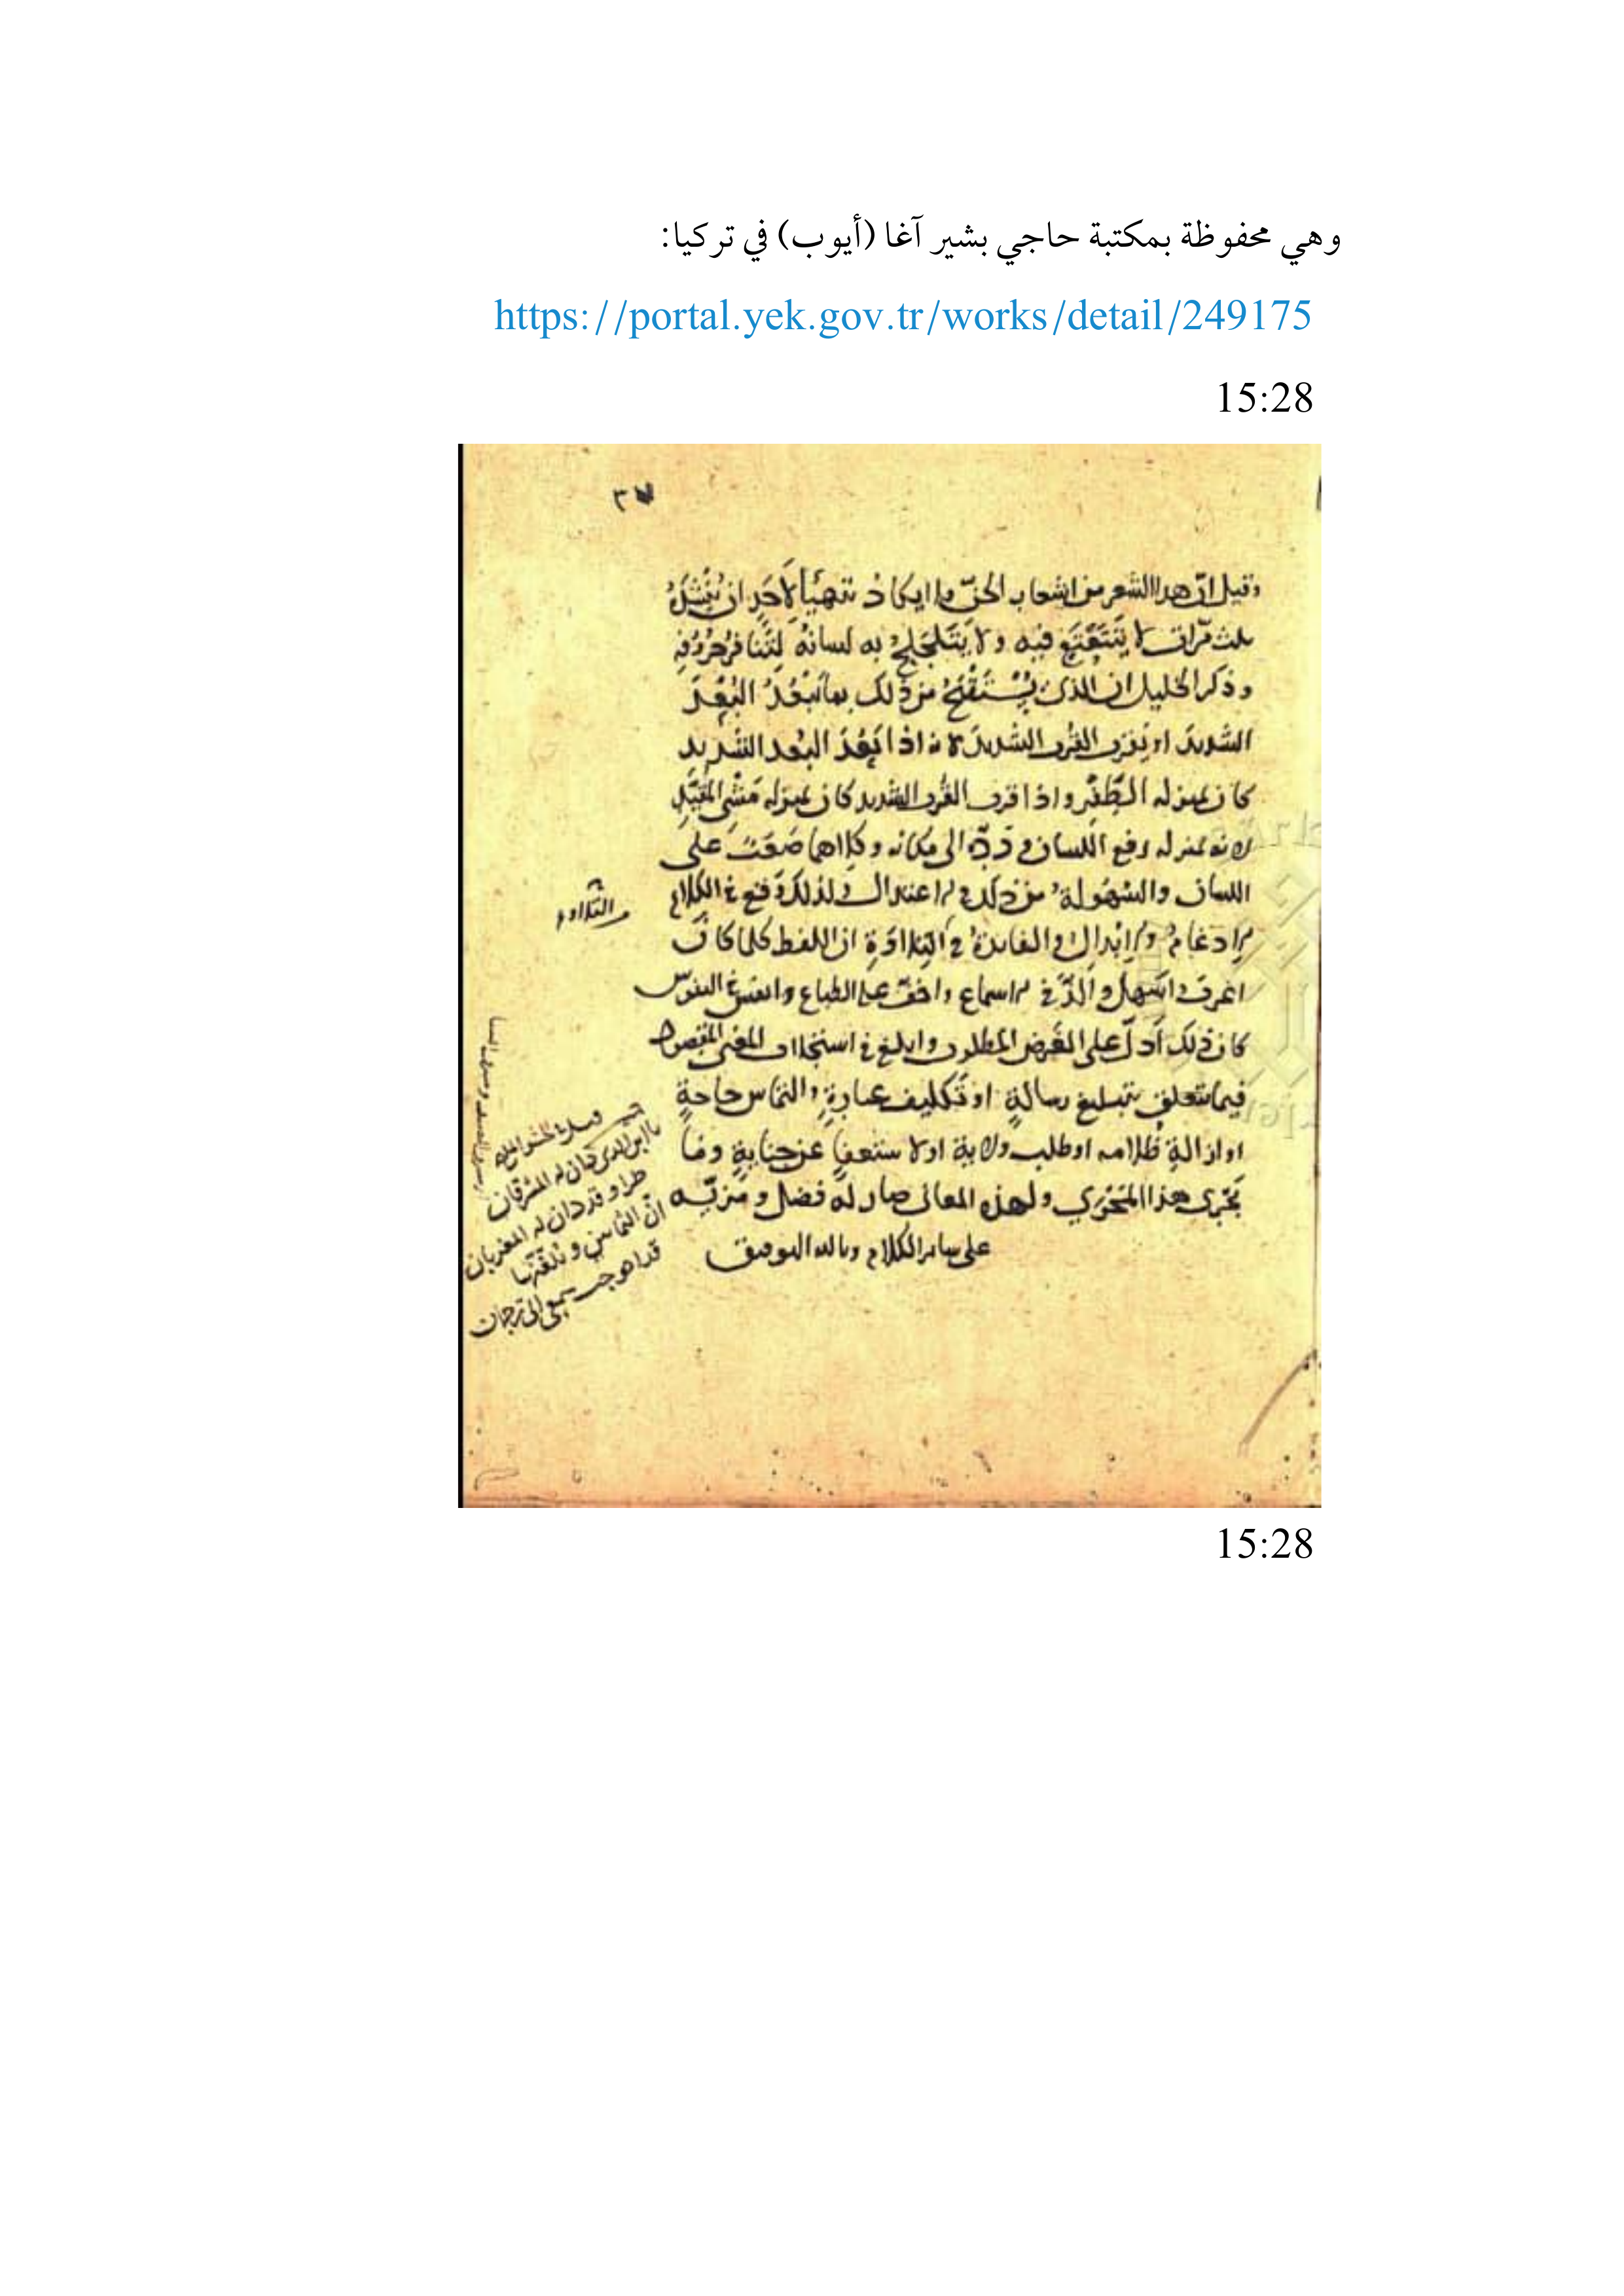 وهي محفوظة بمكتبة حاجي بشير آغا (أيوب) في تركيا:
https://portal.yek.gov.tr/works/detail/249175
15:28
٣٧
وقيل ان هذا الشعر من اشعار الجنّ ولا يكاد يتهيأ لأحدٍ ان يُنشدهُ
ثلث مرّات لا يتتعتع فيه ولا يتلجلج به لسانهُ لتنافر حروفه
وذكر الخليل ان الذى يُستقبح من ذلك ما يَبعُدُ البُعْدَ
الشديدَ او يَقرب القُرب الشديدَ لانه اذا بَعُدَ البُعد الشديد
كان بمنزله الطَّفْر واذا قرب القُرب الشديد كان بمنزله مَشْىِ المُقيَّدِ
لانه بمنزله رفع اللسان وردّه الى مكانه وكلاهما صَعْبٌ على
اللسان والسّهُولة من ذلك فى الاعتدال ولذلك وَقع فى الكلام
الادغام والابدال والفائدة فى التلاؤم ان اللفظ كلما كان
اعرف واسهل والذّ فى الاسماع واخفّ على الطباع و فى النفوس
كان ذلك أدلّ على الغَرض المطلوب وابلغ فى المعنى المقصود
فيما يتعلق بتبليغ رسالةٍ او تكليف عبارةٍ والتماس حاجةٍ
او ازالةِ ظلامه او طلب ولاية او لاستعفاٍ عن جنايةٍ وما
يَجْرى هذا المَجْرَي ولهذه المعانى صار لهُ فضل ومَزيّه
على ساير الكلام وبالله التوفيق
التلاوم
يا ابن الذى دان له المشرقان
طرا وقد دان له المغربان
انّ الثمانين وبُلّغتَها
قد احوجت سمعى الى ترجمان
15:28